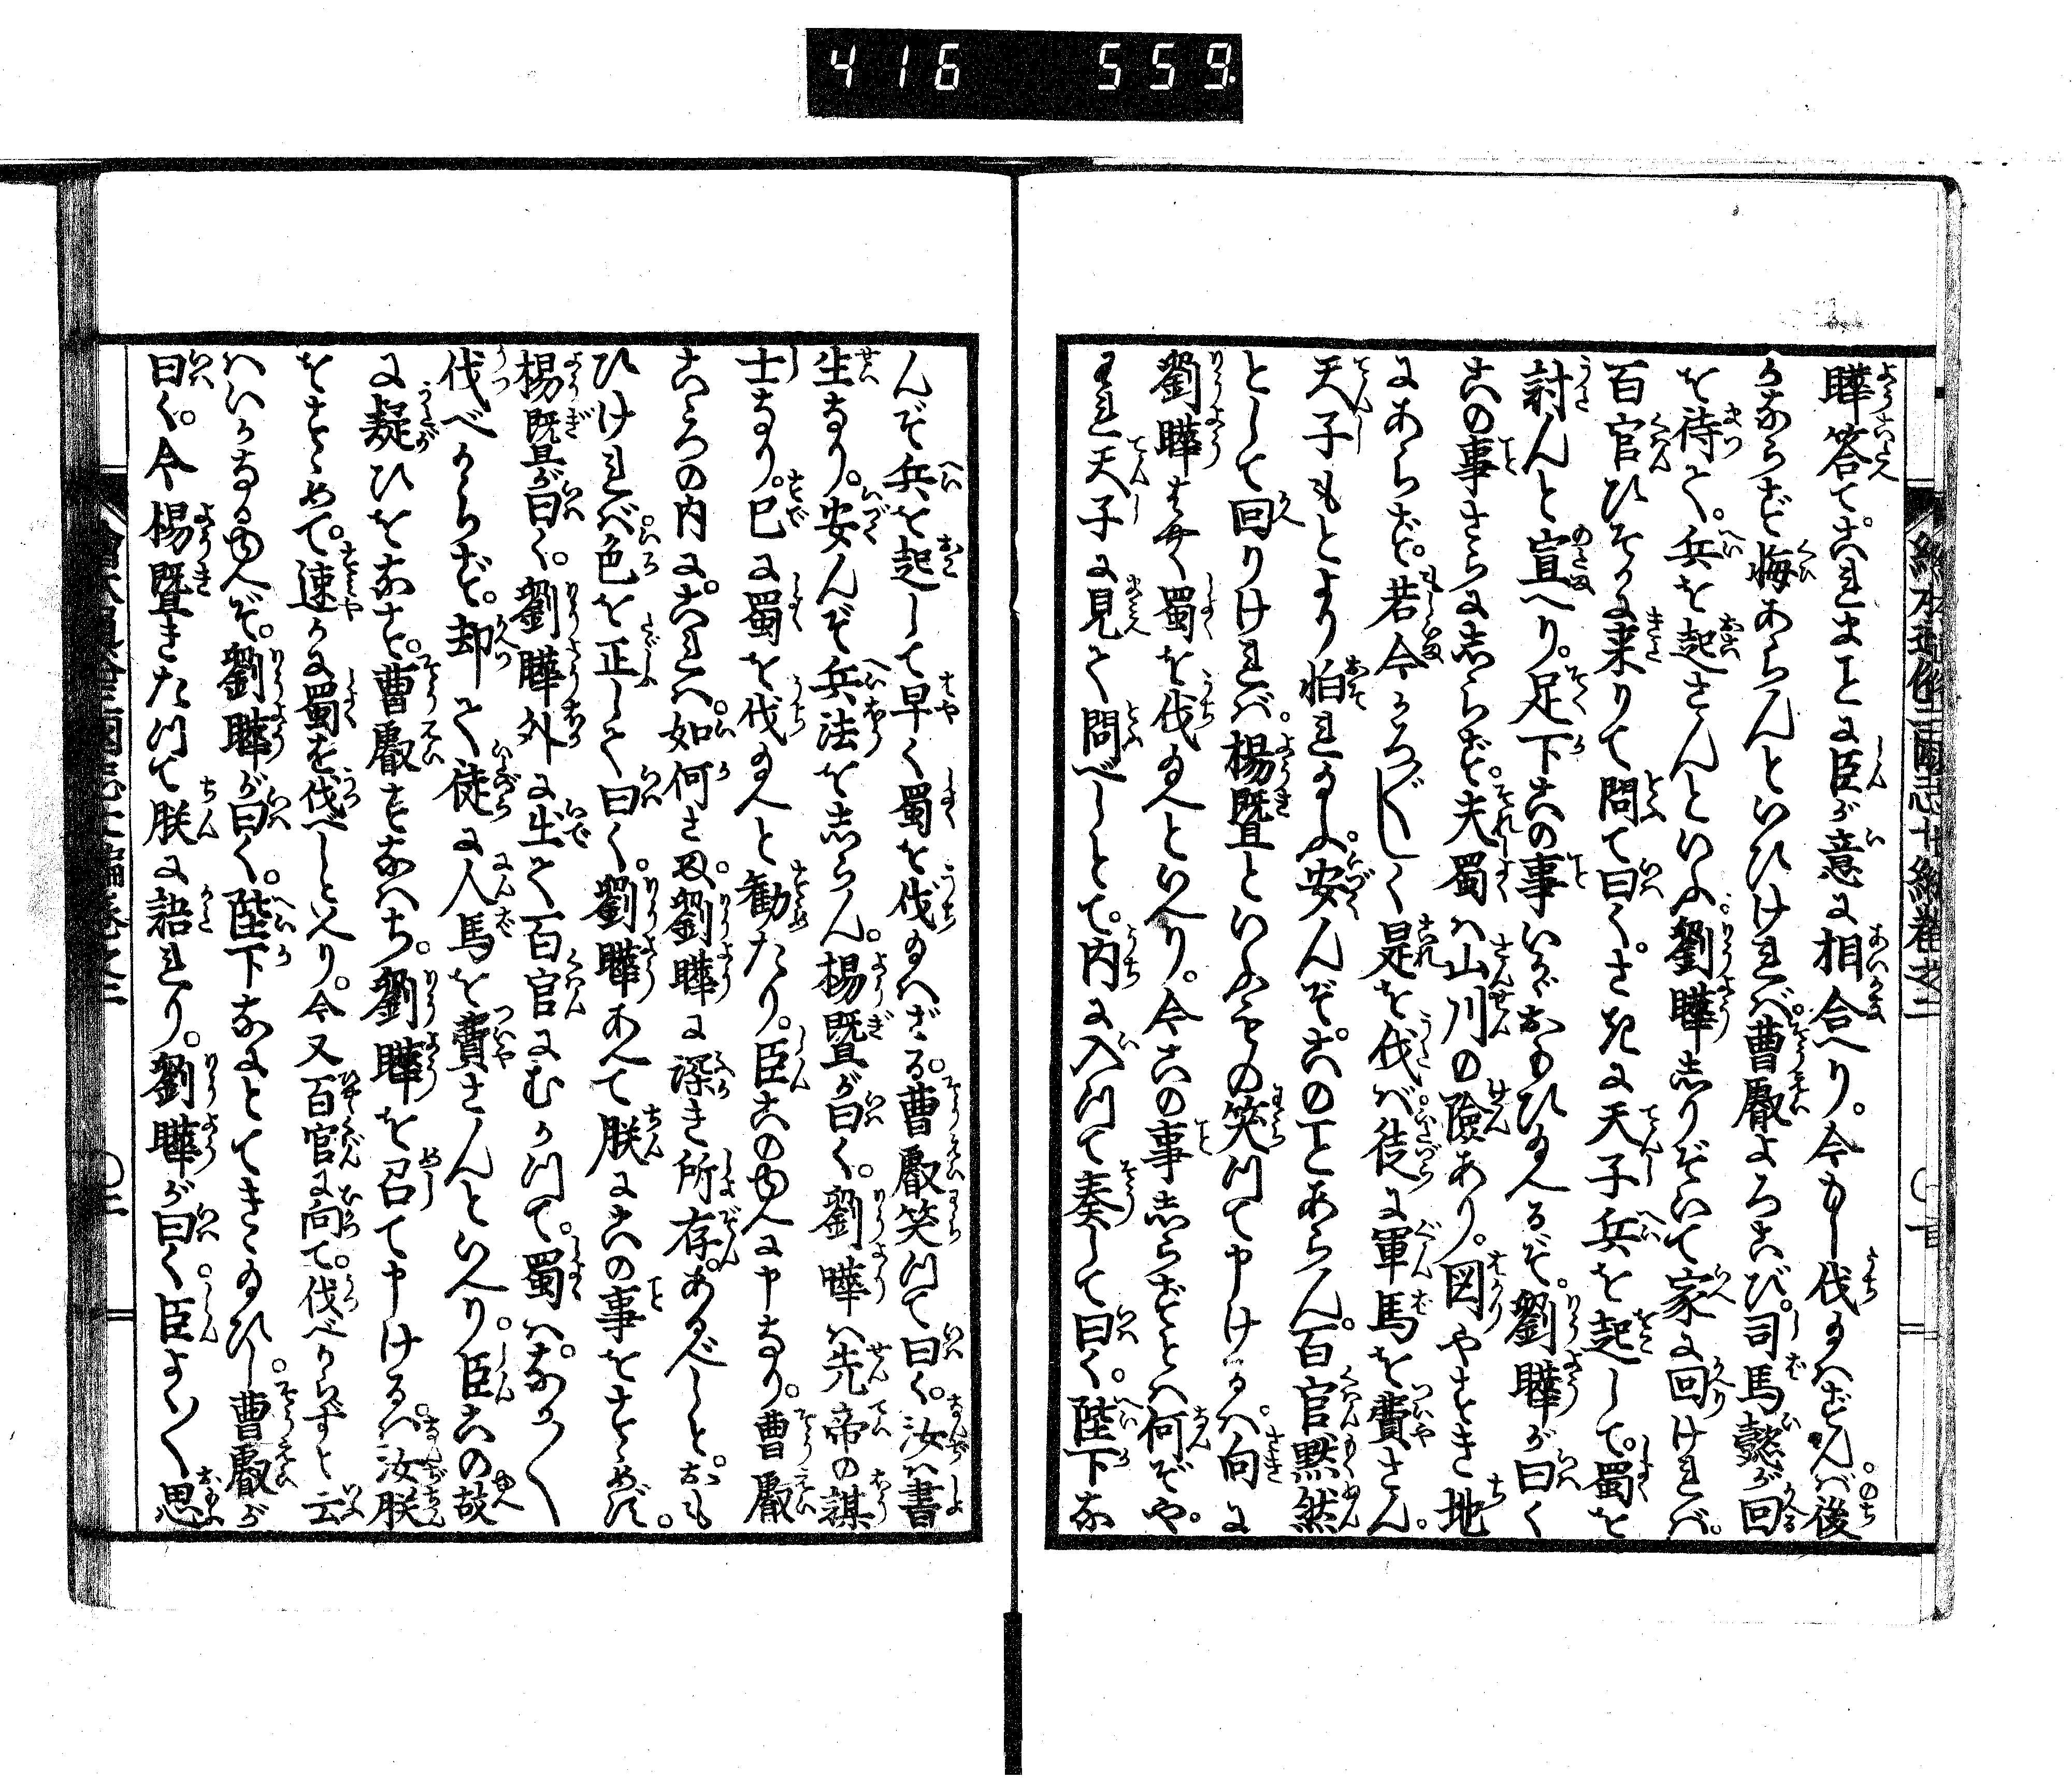 416 559
曄答て。これまことに臣が意に相合へり。今もし伐給はずんば。後
かならず悔あらんといひければ。曹叡よろこび。司馬懿が回
を待て。兵を起さんといふ。劉曄しりぞいて家に回ければ。
百官ひそかに来りて問て曰く。さきに天子兵を起して。蜀を
討んと宣へり。足下この事いかゞおもひ給ふぞ。劉曄が曰く
この事さらにしらず。夫蜀は山川の険あり。図やすき地
にあらず。若今かろ〴〵しく是を伐ば。徒に軍馬を費さん。
天子もとより怕れ給ふ。安んぞこのことあらん。百官黙然
として回りければ。楊曁といふもの笑つて申けるは。向に
劉曄まさに蜀を伐給へといへり。今この事しらずとは何ぞや。
われ天子に見て問べしとて。内に入つて奏して曰く。陛下な
んぞ兵を起して早く蜀を伐給はざる。曹叡笑つて曰く。汝は書
生なり。安んぞ兵法をしらん。楊曁が曰く。劉曄は先帝の謀
士なり。已に蜀を伐給へと勧たり。臣この由へに申なり。曹叡
こゝろの内に。これは如何さま。劉曄に深き所存あるべしと。おも
ひければ。色を正しくて曰く。劉曄あへて朕にこの事をすゝめず。
楊曁が曰く。劉曄外に出て百官にむかつて。蜀はなか〳〵
伐べからず。却て徒に人馬を費さんといへり。臣この故
に疑ひをなす。曹叡すなはち。劉曄を召て申けるは。汝朕
をすゝめて。速かに蜀を伐べしといへり。今又百官に向て。伐べからずと云
はいかなる由へぞ。劉曄が曰く。陛下なにとてきゝ給ひし。曹叡が
曰く。今楊曁きたつて朕に語れり。劉曄が曰く。臣よく〳〵思